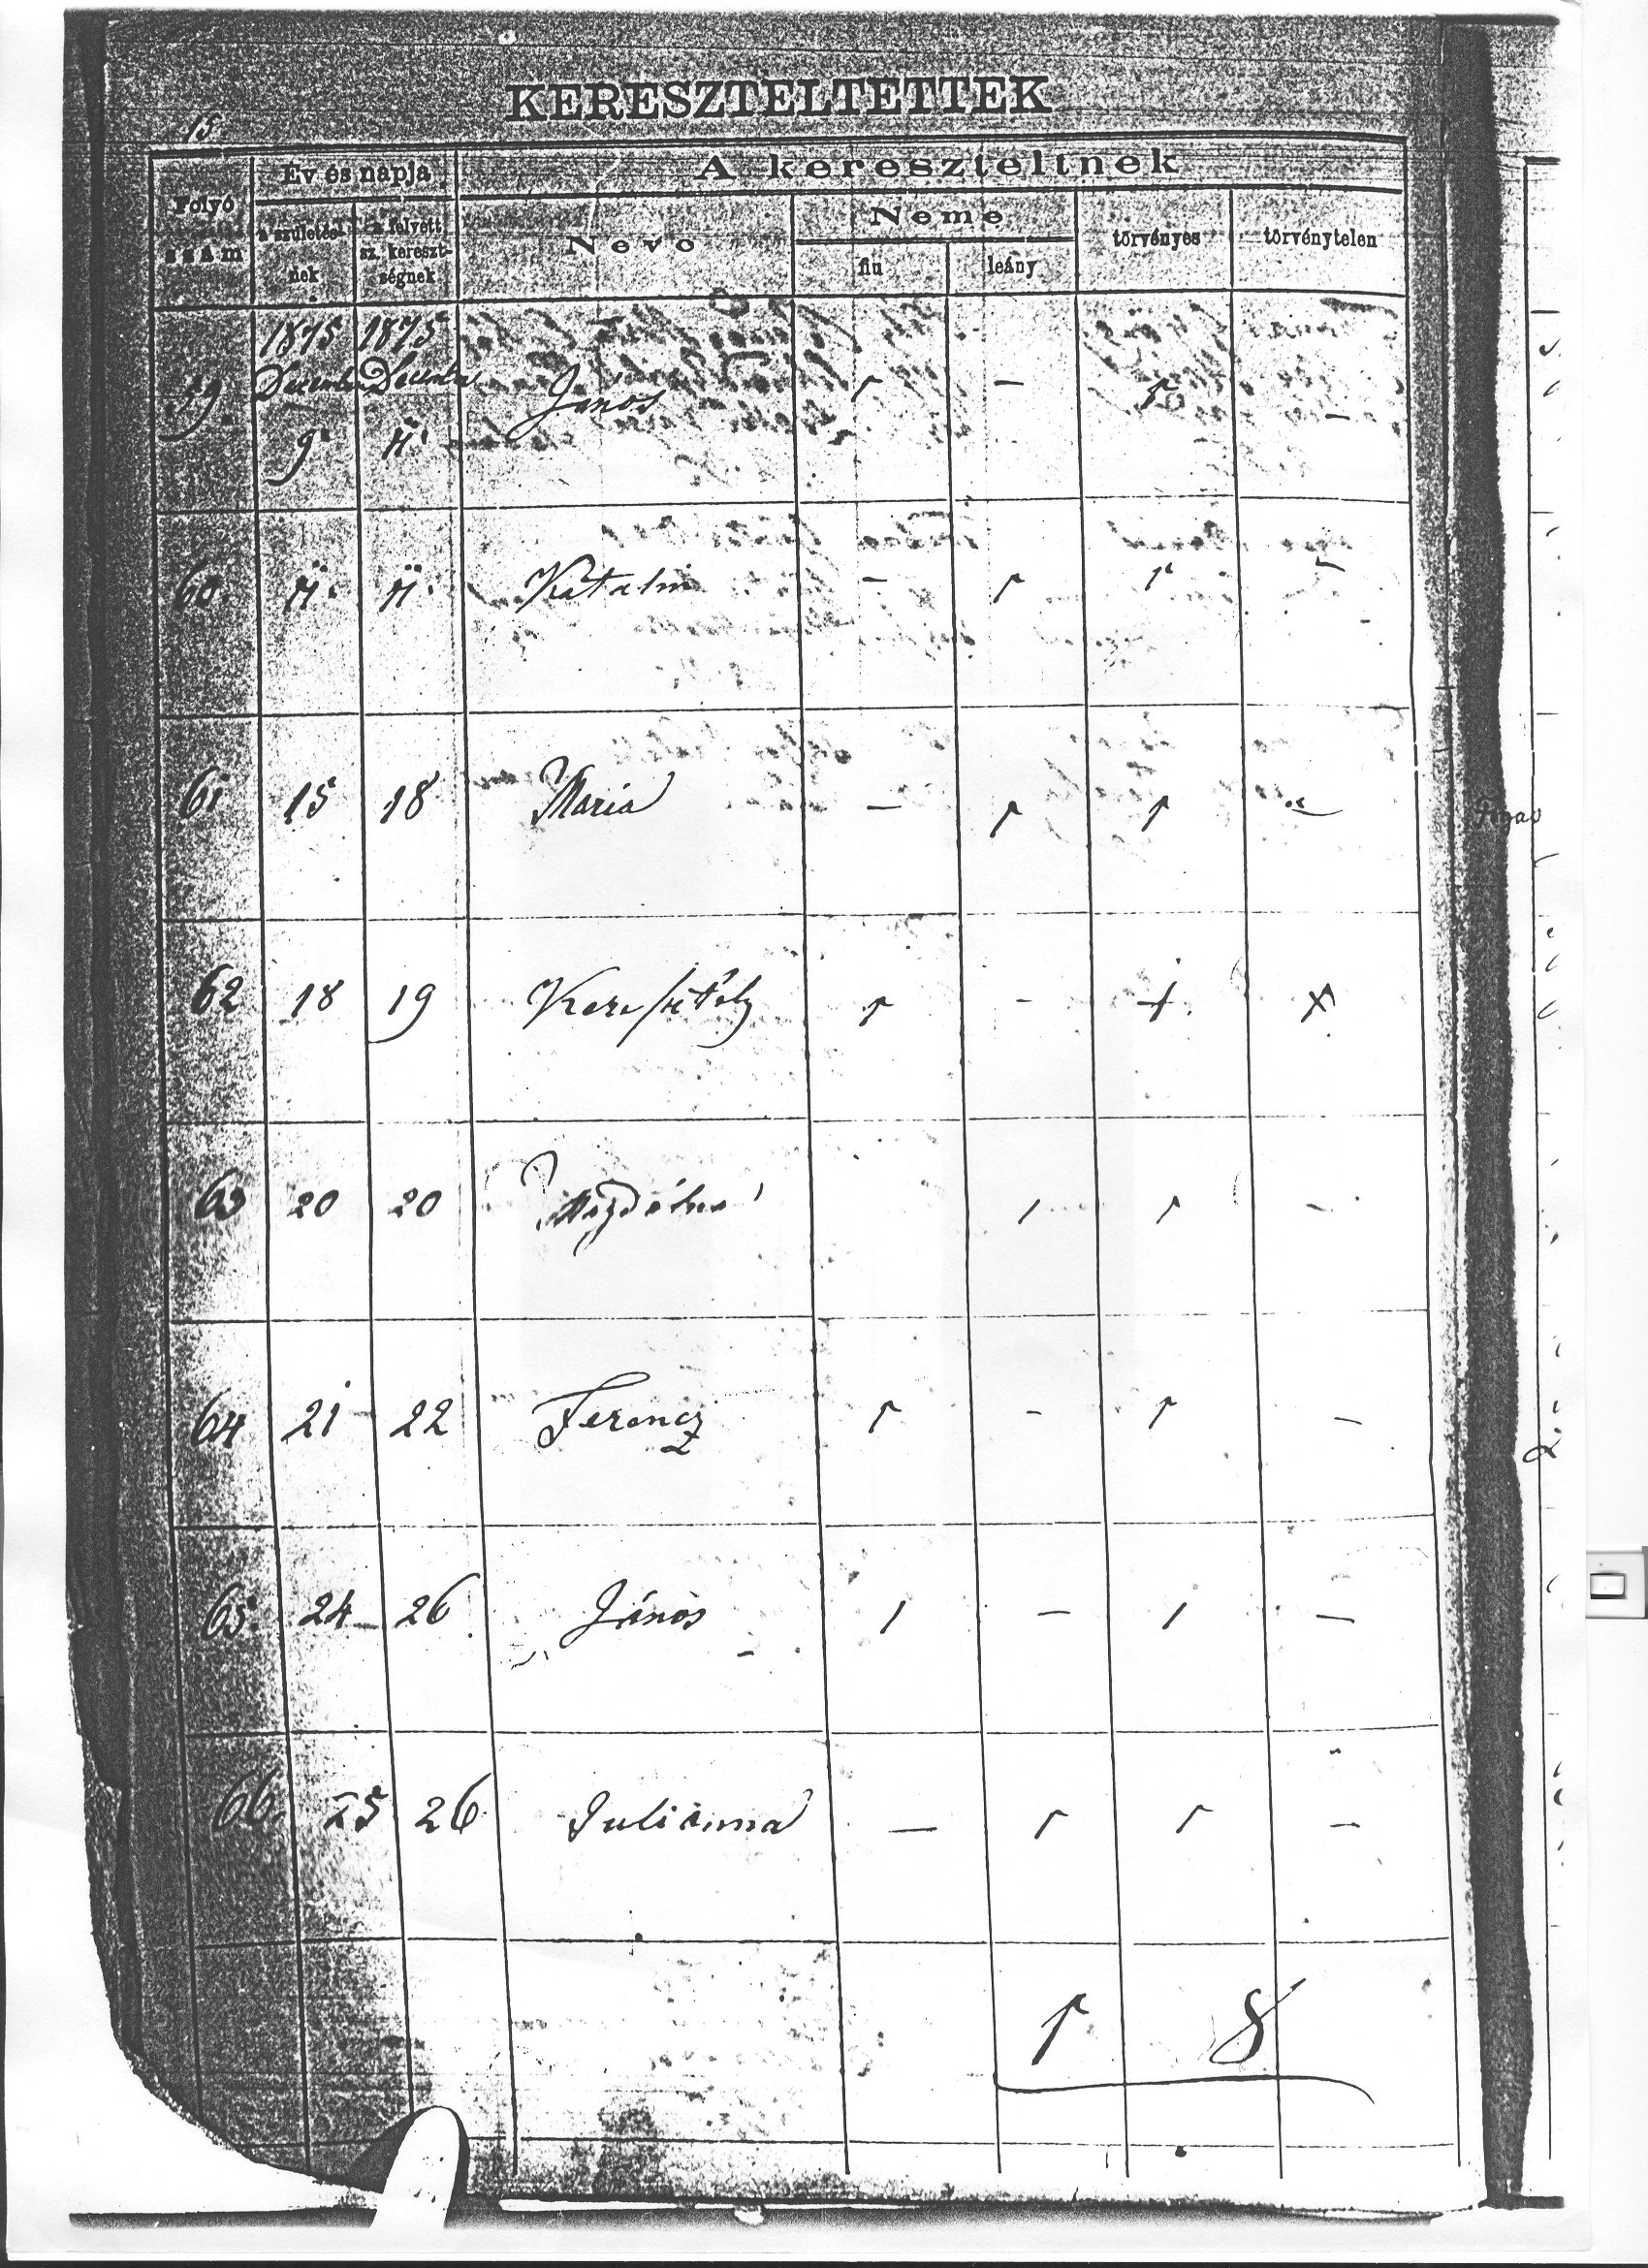 KERESZTELTETTEK
15
Folyó szám
Év és napja
A kereszteltnek
a születésnek
a felvett sz. keresztségnek
Neve
Neme
fiu
leány
törvényes
törvénytelen
1875 1875
59. 9 János 1 — 1 —
60. Katalin — 1 1 —
61 15 18 Maria — 1 1 —
62 18 19 Keresztély 1 - + X
63 20 20 1 1 -
64 21 22 Ferencz 1 - 1 —
65. 24 26 János 1 — 1 —
66. 25 26 Julianna — 1 1 —
1 8